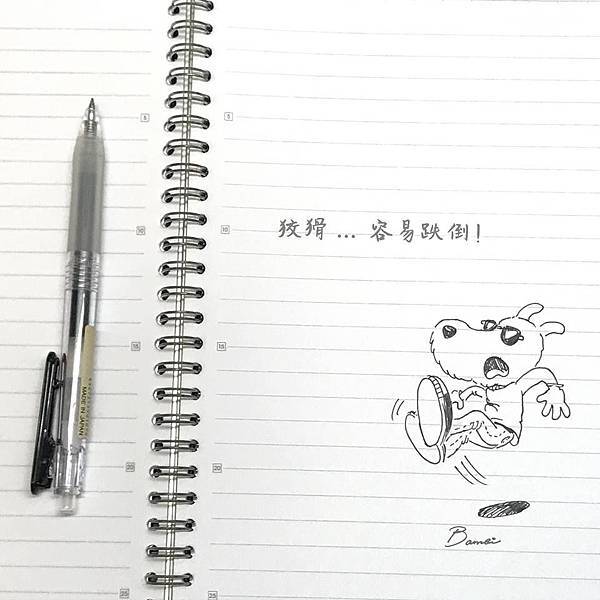 狡猾...容易跌倒!
Bambi
MADE IN JAPAN
5
5
10
10
15
15
20
20
25
25